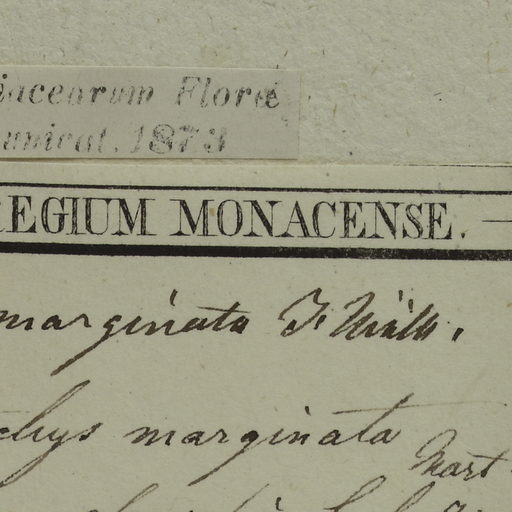 iacearum Floræ
unicat. 1873
REGIUM MONACENSE.
marginata
chys marginata
Mart